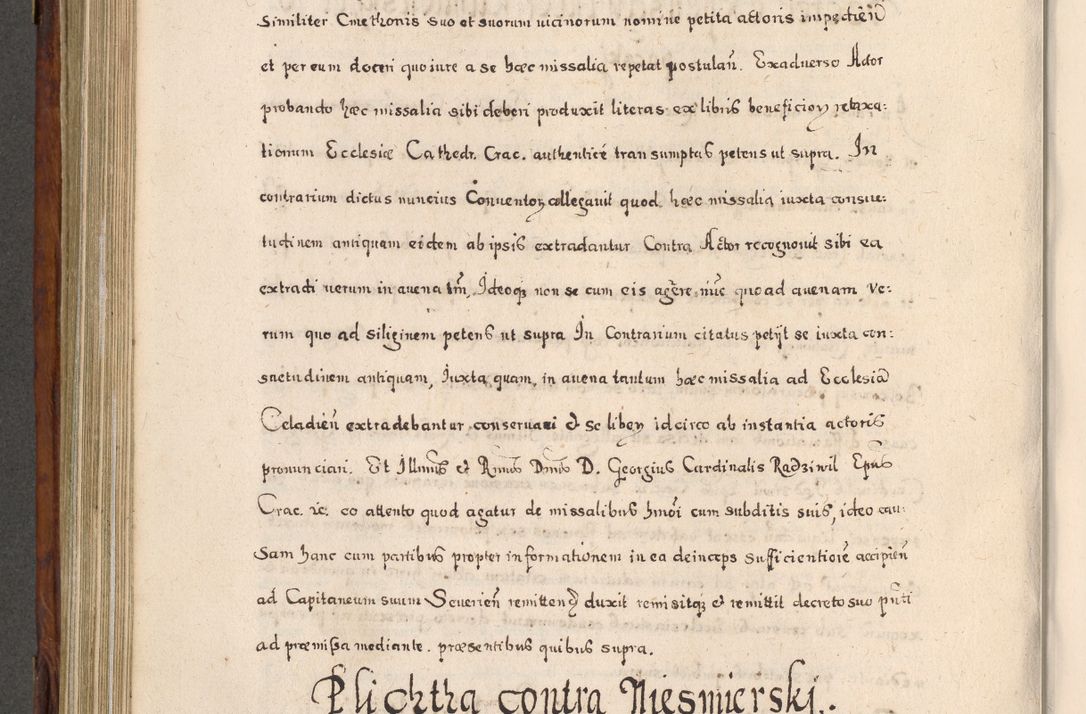 Similiter Cmethonis suo et suorum uicinorum nomine petita actoris impedień
et per eum doceri quo iure a se hæc missalia repetat postulań. Exaduerso Actor
probando hæc missalia sibi deberi produxit literas ex libris beneficioꝝ retaxa:
tionum Ecclesiæ Cathedr. Crac. authenticè transumptas petens ut supra. In
contrarium dictus nuncius Conuentoꝝ allegauit quod hæc missalia iuxta consue:
tudinem antiquam eidem ab ipsis extradantur Contra Actor recognouit sibi ea
extradi uerum in auena tm̃, Ideoqꝫ non se cum eis agere nũc quoad auenam ve:
rum quo ad siliginem petens ut supra In Contrarium citatus petijt se iuxta con:
suetudinem antiquam, Iuxta quam, in auena tantum hæc missalia ad Ecclesiã
Celadień extradebantur conseruari & se libeꝝ idcirco ab instantia actoris
pronunciari. Et Illmus et Rmus Dnus D. Georgius Cardinalis Radziwil Epus
Crac. ic. eo attento quod agatur de missalibus hmõi cum subditis suis, ideo cau:
sam hanc cum partibus propter informationem in ea deinceps sufficientiorẽ accipień
ad Capitaneum suum Seuerień remitteń duxit remisitqꝫ et remittit decreto suo pñti
ad præmissa mediante. præsentibus quibus supra.
Plichtha contra Niesmierski.